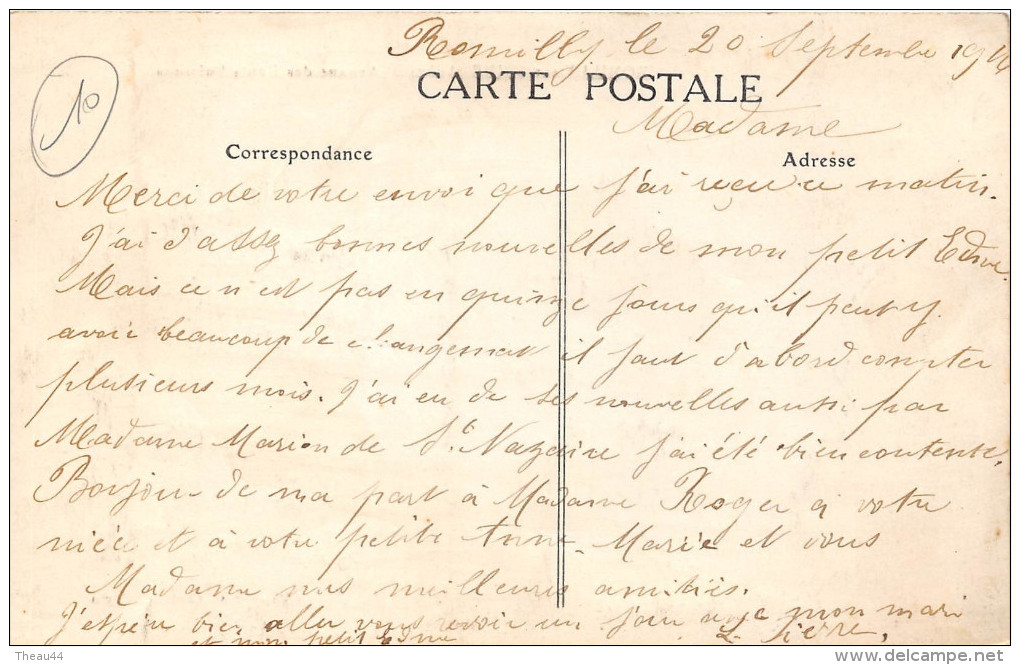 10
Romilly le 20 Septembre 19
CARTE POSTALE
Madame
Correspondance
Adresse
Merci de votre envoi que j'ai reçu ce matin.
J'ai d'assez bonnes nouvelles de mon petit Edme.
Mais ce n'est pas en quinze jours qu'il peut y
avoir beaucoup de changement il faut d'abord compter
plusieurs mois. J'ai eu de ses nouvelles aussi par
Madame Marion de St Nazaire j'ai été bien contente.
Bonjour de ma part à Madame Roger à votre
nièce et à votre petite Anne-Marie et vous
Madame mes meilleures amitiés.
J'espère bien aller vous revoir un jour avec mon mari
et mon petit Edme
L. Pierre.
Theau44
www.delcampe.net